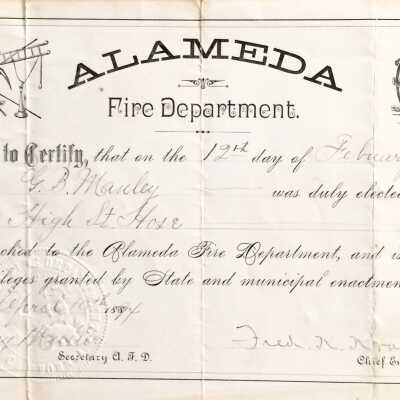 ALAMEDA
Fire Department.
to Certify, that on the 12th day of Februar
G. B. Manley was duly elected
High St Hose
ched to the Alameda Fire Department, and is
leges granted by State and municipal enactmen
April 1884
Secretary A. F. D.
Fred K. Chief En